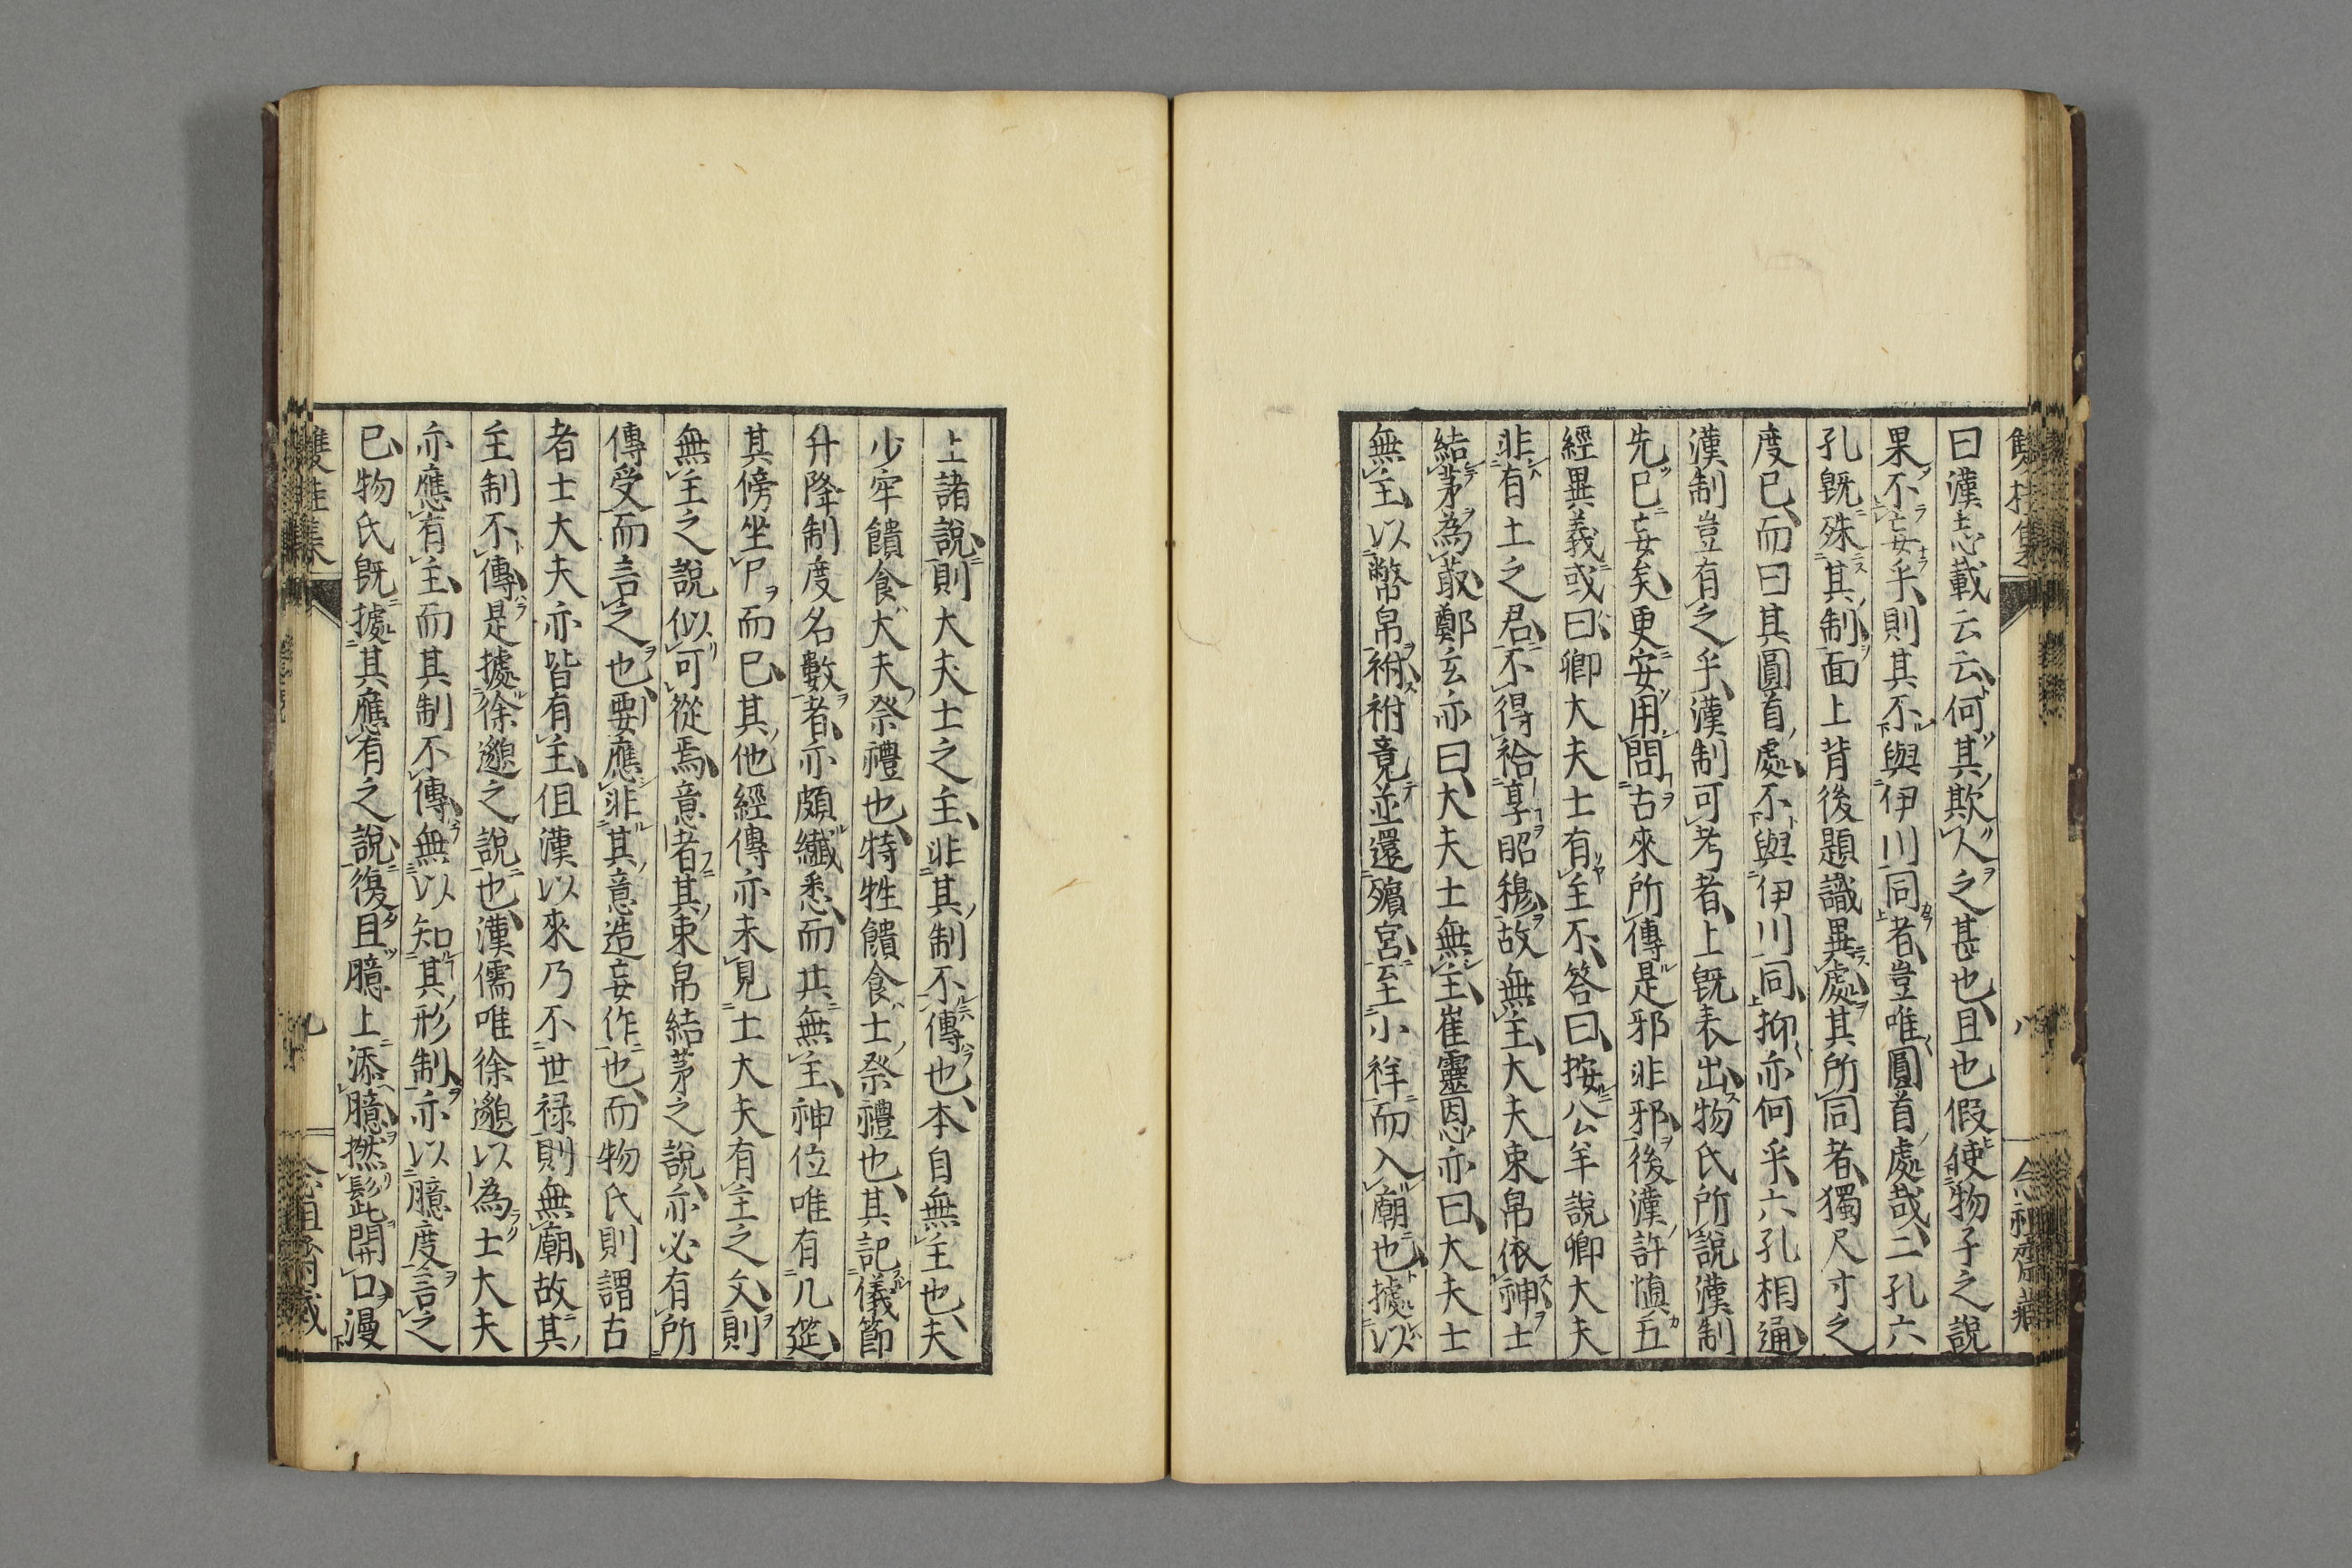 曰漢志載云云何其欺人之甚也且也假使物子之說
果不妄乎則其不與伊川同者豈唯圓首處哉二孔六
孔既殊其制面上背後題識異處其所同者獨尺寸之
度已而曰其圓首處不與伊川同抑亦何乎六孔相通
漢制豈有之乎漢制可考者上既表出物氏所說漢制
先已妄矣更安用問古來所傳是邪非邪後漢許慎五
經異義或曰卿大夫士有主不答曰按公羊說卿大夫
非有土之君不得祫享昭穆故無主大夫束帛依神士
結茅為菆鄭玄亦曰大夫士無主崔靈恩亦曰大夫士
無主以幣帛祔祔竟並還殯宮至小祥而入廟也據以
上諸說則大夫士之主非其制不傳也本自無主也夫
少牢饋食大夫祭禮也特牲饋食士祭禮也其記儀節
升降制度名數者亦頗纖悉而其無主神位唯有几筵
其傍坐尸而已其他經傳亦未見士大夫有主之文則
無主之說似可從焉意者其束帛結茅之說亦必有所
傳受而言之也要應非其意造妄作也而物氏則謂古
者士大夫亦皆有主但漢以來乃不世祿則無廟故其
主制不傳是據徐邈之說也漢儒唯徐邈以為士大夫
亦應有主而其制不傳無以知其形制亦以臆度言之
已物氏既據其應有之說復且臆上添臆撚髭開口漫
八